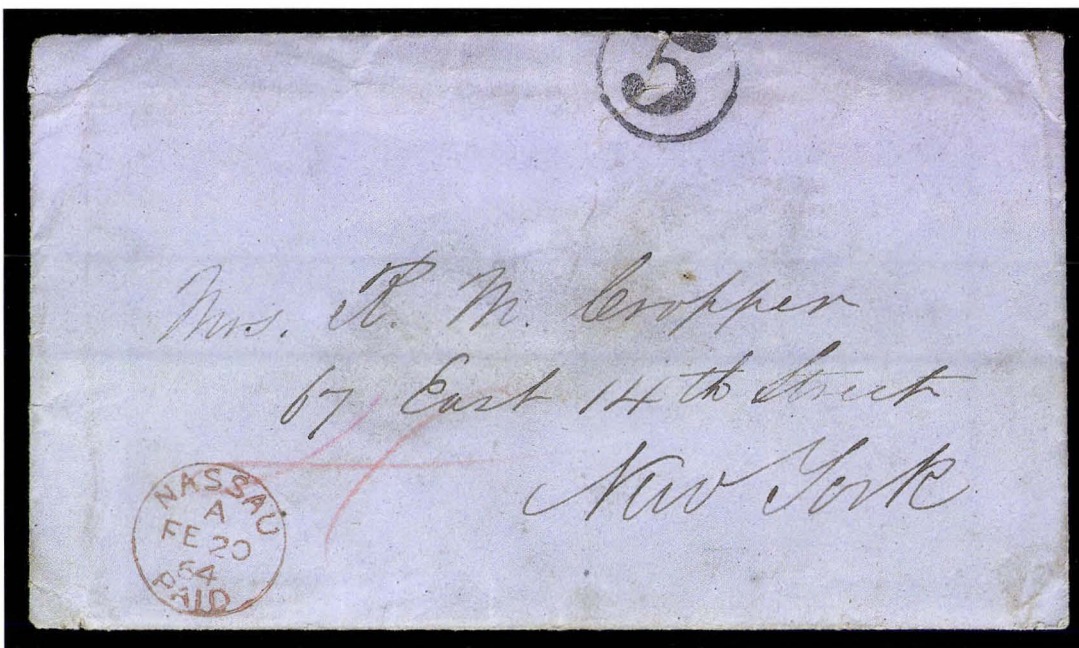 5
Mrs. R. M. Cropper
67 East 14th Street
New York
NASSAU
A
FE 20
64
PAID